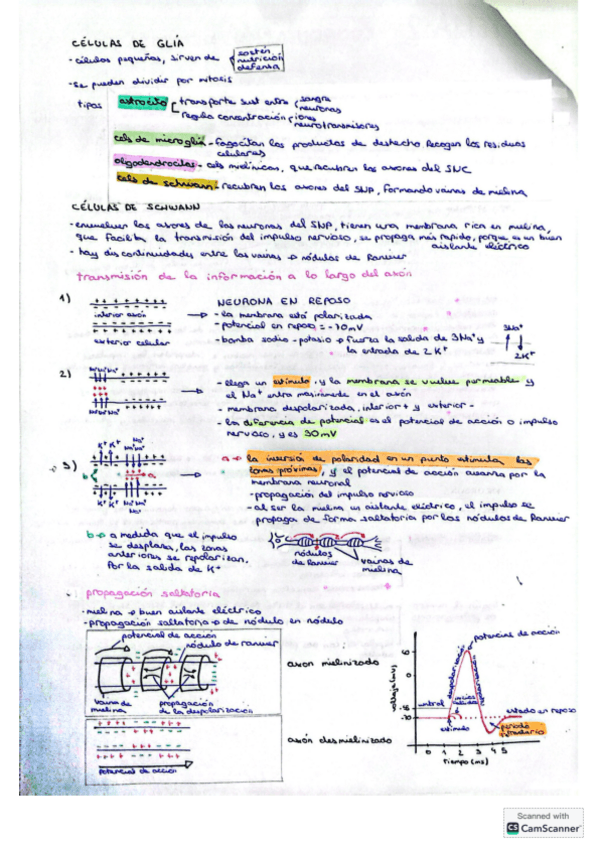 CÉLULAS DE GLÍA
- células pequeñas, sirven de { sostén
nutrición
defensa
- se pueden dividir por mitosis
tipos astrocito [ transporte sust entre { sangre
neuronas
regula concentración { iones
neurotransmisores
cels de microglía - fagocitan los productos de desecho. Recogen los residuos
celulares
oligodendrocitos - cels mielínicas, que recubren los axones del SNC
cels de schwann - recubren los axones del SNP, formando vainas de mielina
CÉLULAS DE SCHWANN
- envuelven los axones de las neuronas del SNP, tienen una membrana rica en mielina,
que facilita la transmisión del impulso nervioso, se propaga más rapido, porque es un buen
aislante eléctrico
- hay discontinuidades entre las vainas → nódulos de Ranvier
transmisión de la información a lo largo del axón
1)
+ + + + + + +
- - - - - - -
interior axón
- - - - - - -
+ + + + + + +
exterior celular
NEURONA EN REPOSO
- la membrana está polarizada
- potencial en reposo = -70mV
- bomba sodio-potasio → fuerza la salida de 3Na⁺ y
la entrada de 2K⁺
3Na⁺
2K⁺
2)
- llega un estímulo, y la membrana se vuelve permeable y
el Na⁺ entra masivamente en el axón
- membrana despolarizada, interior + y exterior -
- la diferencia de potencial es el potencial de acción o impulso
nervioso, y es 30mV
3)
K⁺ K⁺ Na⁺
b
a
K⁺ K⁺
a → la inversión de polaridad en un punto estimula las
zonas próximas, y el potencial de acción avanza por la
membrana neuronal
- propagación del impulso nervioso
- al ser la mielina un aislante eléctrico, el impulso se
propaga de forma saltatoria por los nódulos de Ranvier
b → a medida que el impulso
se desplaza, las zonas
anteriores se repolarizan.
Por la salida de K⁺
nódulos
de Ranvier
vainas de
mielina
propagación saltatoria
- mielina → buen aislante eléctrico
- propagación saltatoria → de nódulo en nódulo
potencial de acción
nódulo de ranvier
vaina de
mielina
propagación
de la despolarización
axon mielinizado
potencial de acción
axón desmielinizado
potencial de acción
voltaje (mV)
despolarización
umbral
estímulo
estado en reposo
periodo
-70
0 1 2 3 4 5
Tiempo (ms)
Scanned with
CS CamScanner